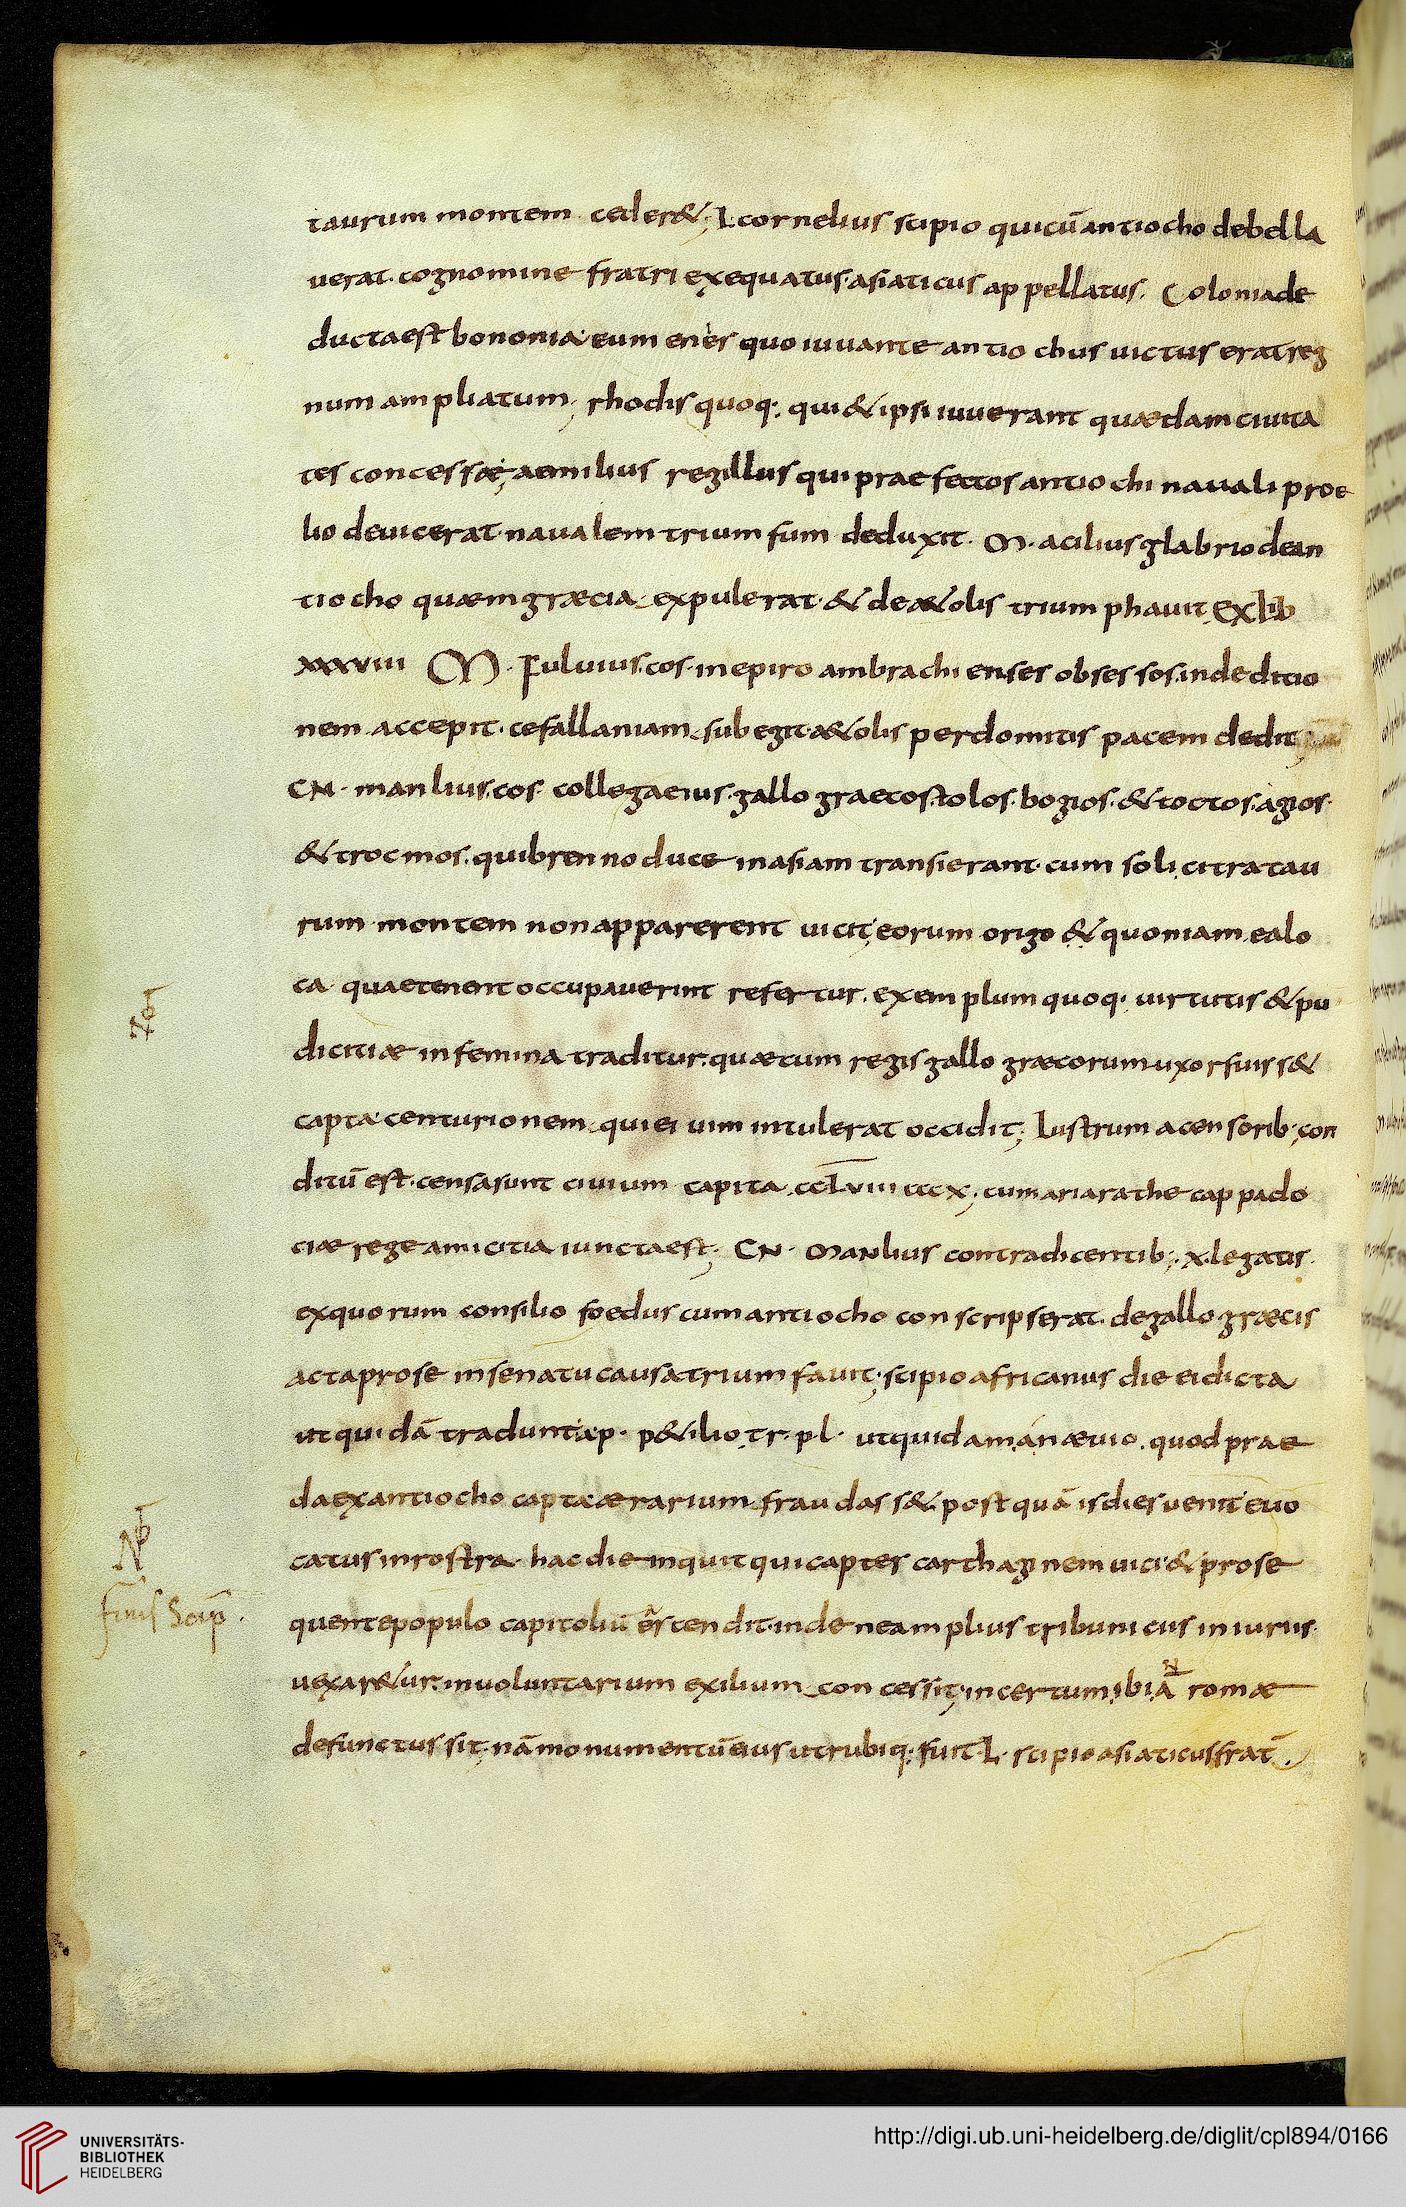 taurum montem ceder&; L cornelius scipio quicū antiocho debella
uerat. cognomine fratri exequatus. asiaticus appellatus. Colonia de
ducta est bononia. eumenes quo iuuante antiochus uictus erat reg
num ampliatum; rhodis quoq; qui & ipsi iuuerant quædam ciuita
tes concessæ; aemilius regillus qui praefectos antiochi nauali proe
lio deuicerat. naualem triumfum deduxit. M. acilius glabrio de an
tiocho quæm græcia expulerat. & de æ&olis triumphauit. EX lib
xxxviii M. Fuluius. cos. in epiro ambrachienses obsessos. in deditio
nem accepit. cefallaniam subegit. æ&olis perdomitis pacem dedit
CN. manlius. cos. collega eius. gallo graecos. tolos. bogios. & toctos. agios.
& trocmos. qui brenno duce in asiam transierant. cum soli. citra tau
rum montem non apparerent uicit; eorum origo & quoniam ea lo
ca quae tenent occupauerint refertur. exemplum quoq; uirtutis & pu
dicitiæ in femina traditur. quæ tum regis gallo græcorum uxor fuiss&
capta. centurionem qui ei uim intulerat occidit; Lustrum a censorib; con
ditū est. censa sunt ciuium capita. ccLviii cccx. cum ariarathe cappado
ciæ rege amicitia iuncta est; CN. Manlius contradicentib; x. legatis.
ex quorum consilio foedus cum antiocho conscripserat. de gallo græcis
acta pro se in senatu causa triumfauit; scipio africanus die ei dicta
ut quidā tradunt. a p. p&ilio. tr. pl. ut quidam. a næuio. quod prae
da ex antiocho capta ærarium fraudass&. postquā is dies uenit. euo
catus in rostra. hac die inquit quicaptes carthaginem uici. & prose
quente populo capitoliū escendit. inde ne amplius tribunicus iniurus.
uexar&ur. in uoluntarium exilium concessit. incertum ibi a N romæ
defunctus sit. nā monumentū eius utrubiq; fuit. L. scipio asiaticus frat̄.
Nō
Nō
finis Scip̄.
UNIVERSITÄTS-
BIBLIOTHEK
HEIDELBERG
http://digi.ub.uni-heidelberg.de/diglit/cpl894/0166